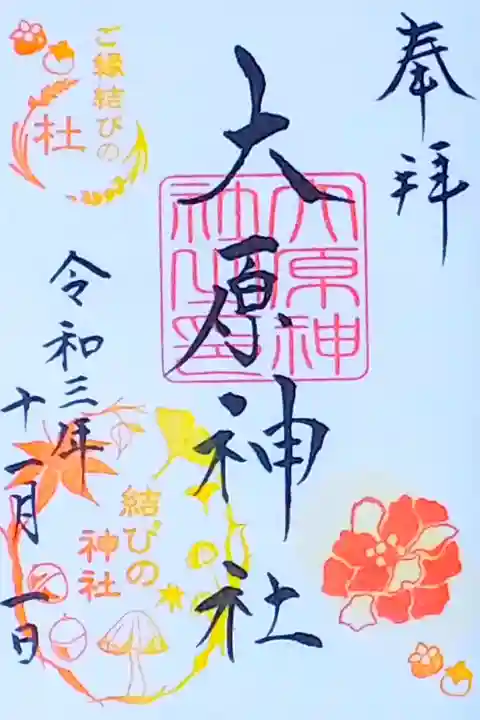 奉拝
大原神社
大原神
社之印
ご縁結びの
杜
令和三年
十一月一日
結びの
神社